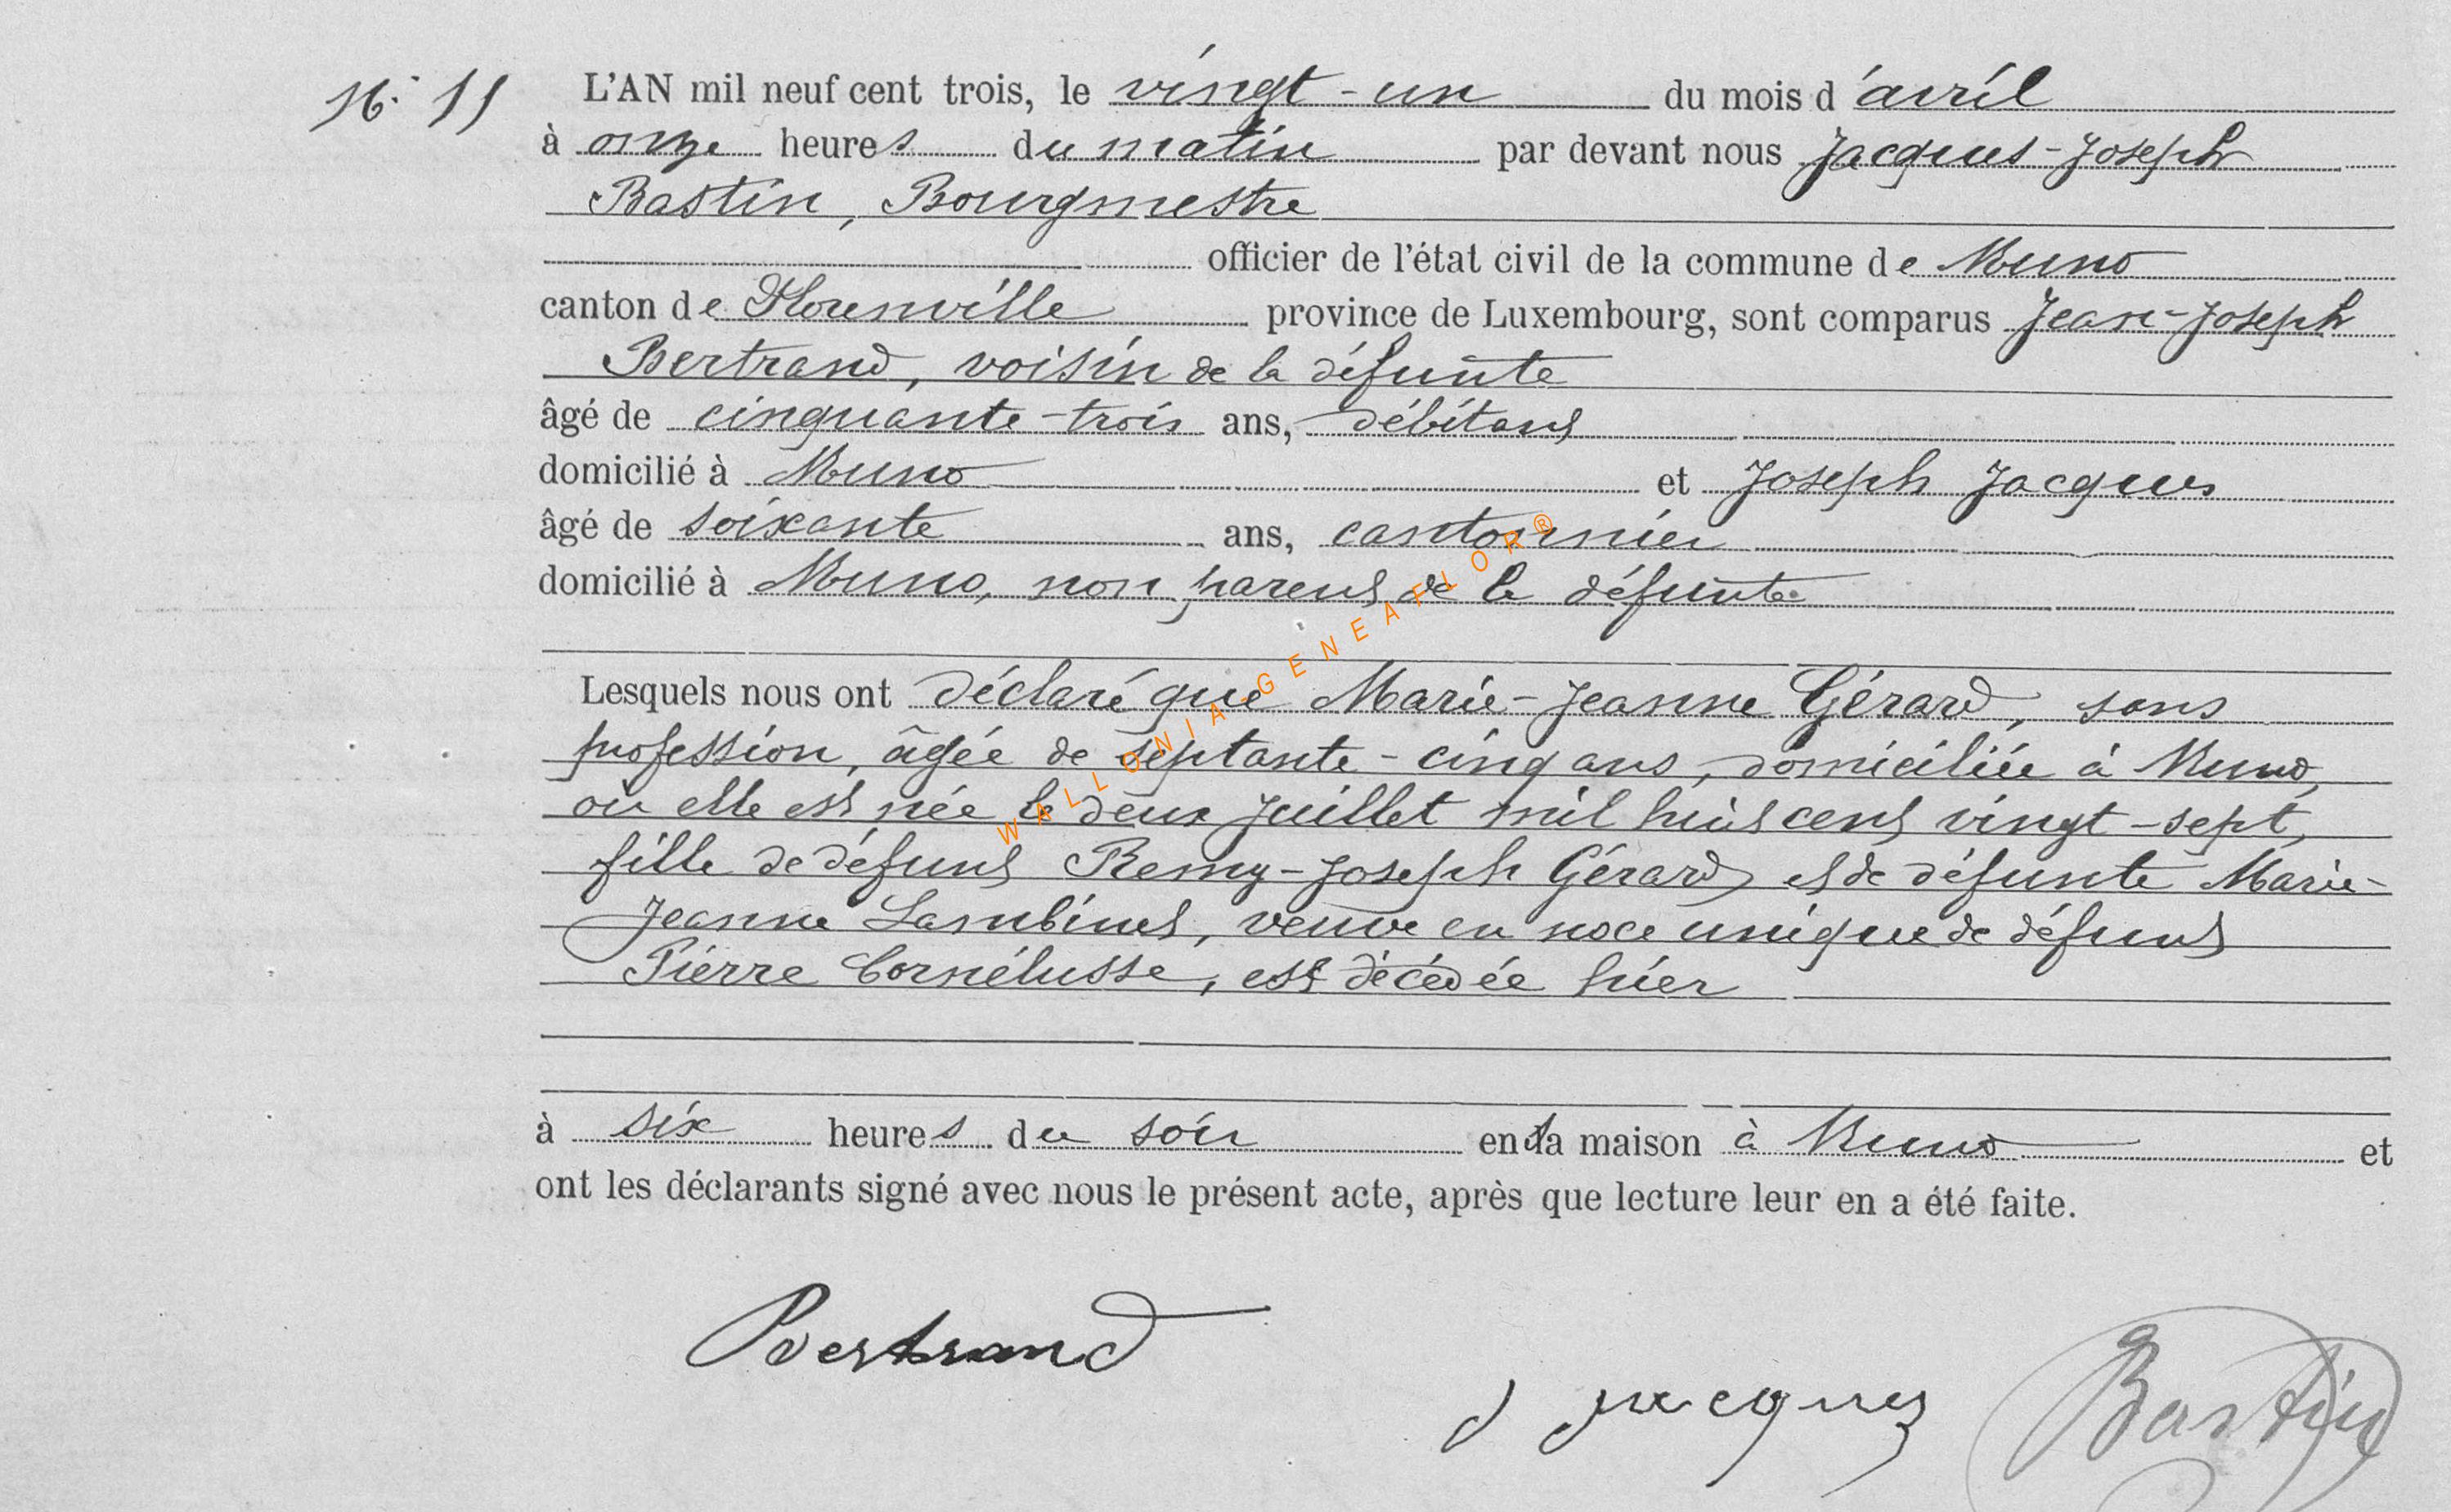 N° 11
L'AN mil neuf cent trois, le vingt-un du mois d'avril
à onze heures du matin par devant nous Jacques-Joseph
Bastin, Bourgmestre
officier de l'état civil de la commune de Muno
canton de Florenville province de Luxembourg, sont comparus Jean-Joseph
Bertrand, voisin de la défunte
âgé de cinquante-trois ans, débitant
domicilié à Muno et Joseph Jacques
âgé de soixante ans, cantonnier
domicilié à Muno, non parent de la défunte
Lesquels nous ont déclaré que Marie-Jeanne Gérard, sans
profession, âgée de septante-cinq ans, domiciliée à Muno,
où elle est née le deux Juillet mil huit cent vingt-sept,
fille de défunt Remy-Joseph Gérard et de défunte Marie-
Jeanne Lambinet, veuve en noce unique de défunt
Pierre Cornélusse, est décédée hier
à six heures du soir en sa maison à Muno et
ont les déclarants signé avec nous le présent acte, après que lecture leur en a été faite.
Bertrand
J Jacques
Bastin
WALLONIA-GENEAFLOR®